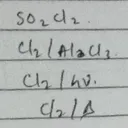 SO2Cl2.
Cl2/Al2Cl3.
Cl2/hν.
Cl2/Δ